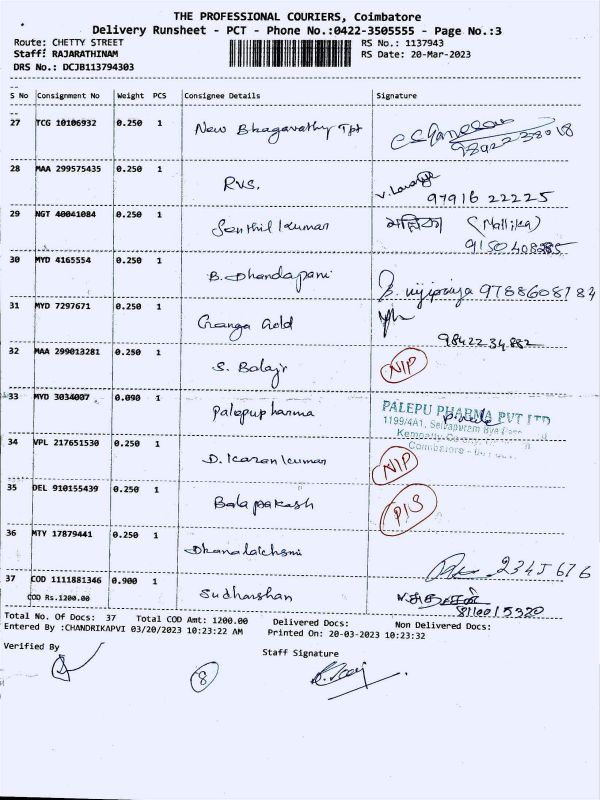 THE PROFESSIONAL COURIERS, Coimbatore
Delivery Runsheet - PCT - Phone No.:0422-3505555 - Page No.:3
Route: CHETTY STREET RS No.: 1137943
Staff: RAJARATHINAM RS Date: 20-Mar-2023
DRS No.: DCJB113794303
S No Consignment No Weight PCS Consignee Details Signature
27 TCG 10106932 0.250 1 New Bhagavathy Tpt
98422 38018
28 MAA 299575435 0.250 1 RVS.
97916 22225
29 NGT 40041084 0.250 1 Senthil kumar (Mallika)
30 MYD 4165554 0.250 1 B. Dhandapani 9788608784
31 MYD 7297671 0.250 1 Ganga Gold
98422 34882
32 MAA 299013281 0.250 1 S. Balaji NIP
33 MYD 3034007 0.090 1 Palepu pharma
PALEPU PHARMA PVT LTD
1199/4A1, Selvapuram Bye
Coimbatore
34 VPL 217651530 0.250 1 D. Karan kumar NIP
35 DEL 910155439 0.250 1 Bala pakash P/S
36 MTY 17879441 0.250 1 Dhanalatchsmi
234J 676
37 COD 1111881346 0.900 1 Sudharshan
COD Rs.1200.00
Total No. Of Docs: 37 Total COD Amt: 1200.00 Delivered Docs: Non Delivered Docs:
Entered By :CHANDRIKAPVI 03/20/2023 10:23:22 AM Printed On: 20-03-2023 10:23:32
Verified By Staff Signature
8